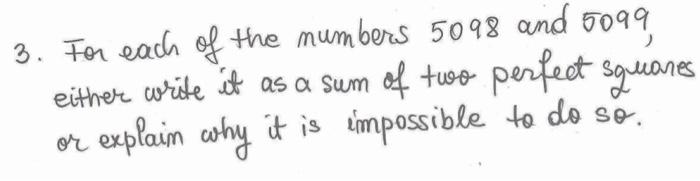 3. For each of the numbers 5098 and 5099,
either write it as a sum of two perfect squares
or explain why it is impossible to do so.